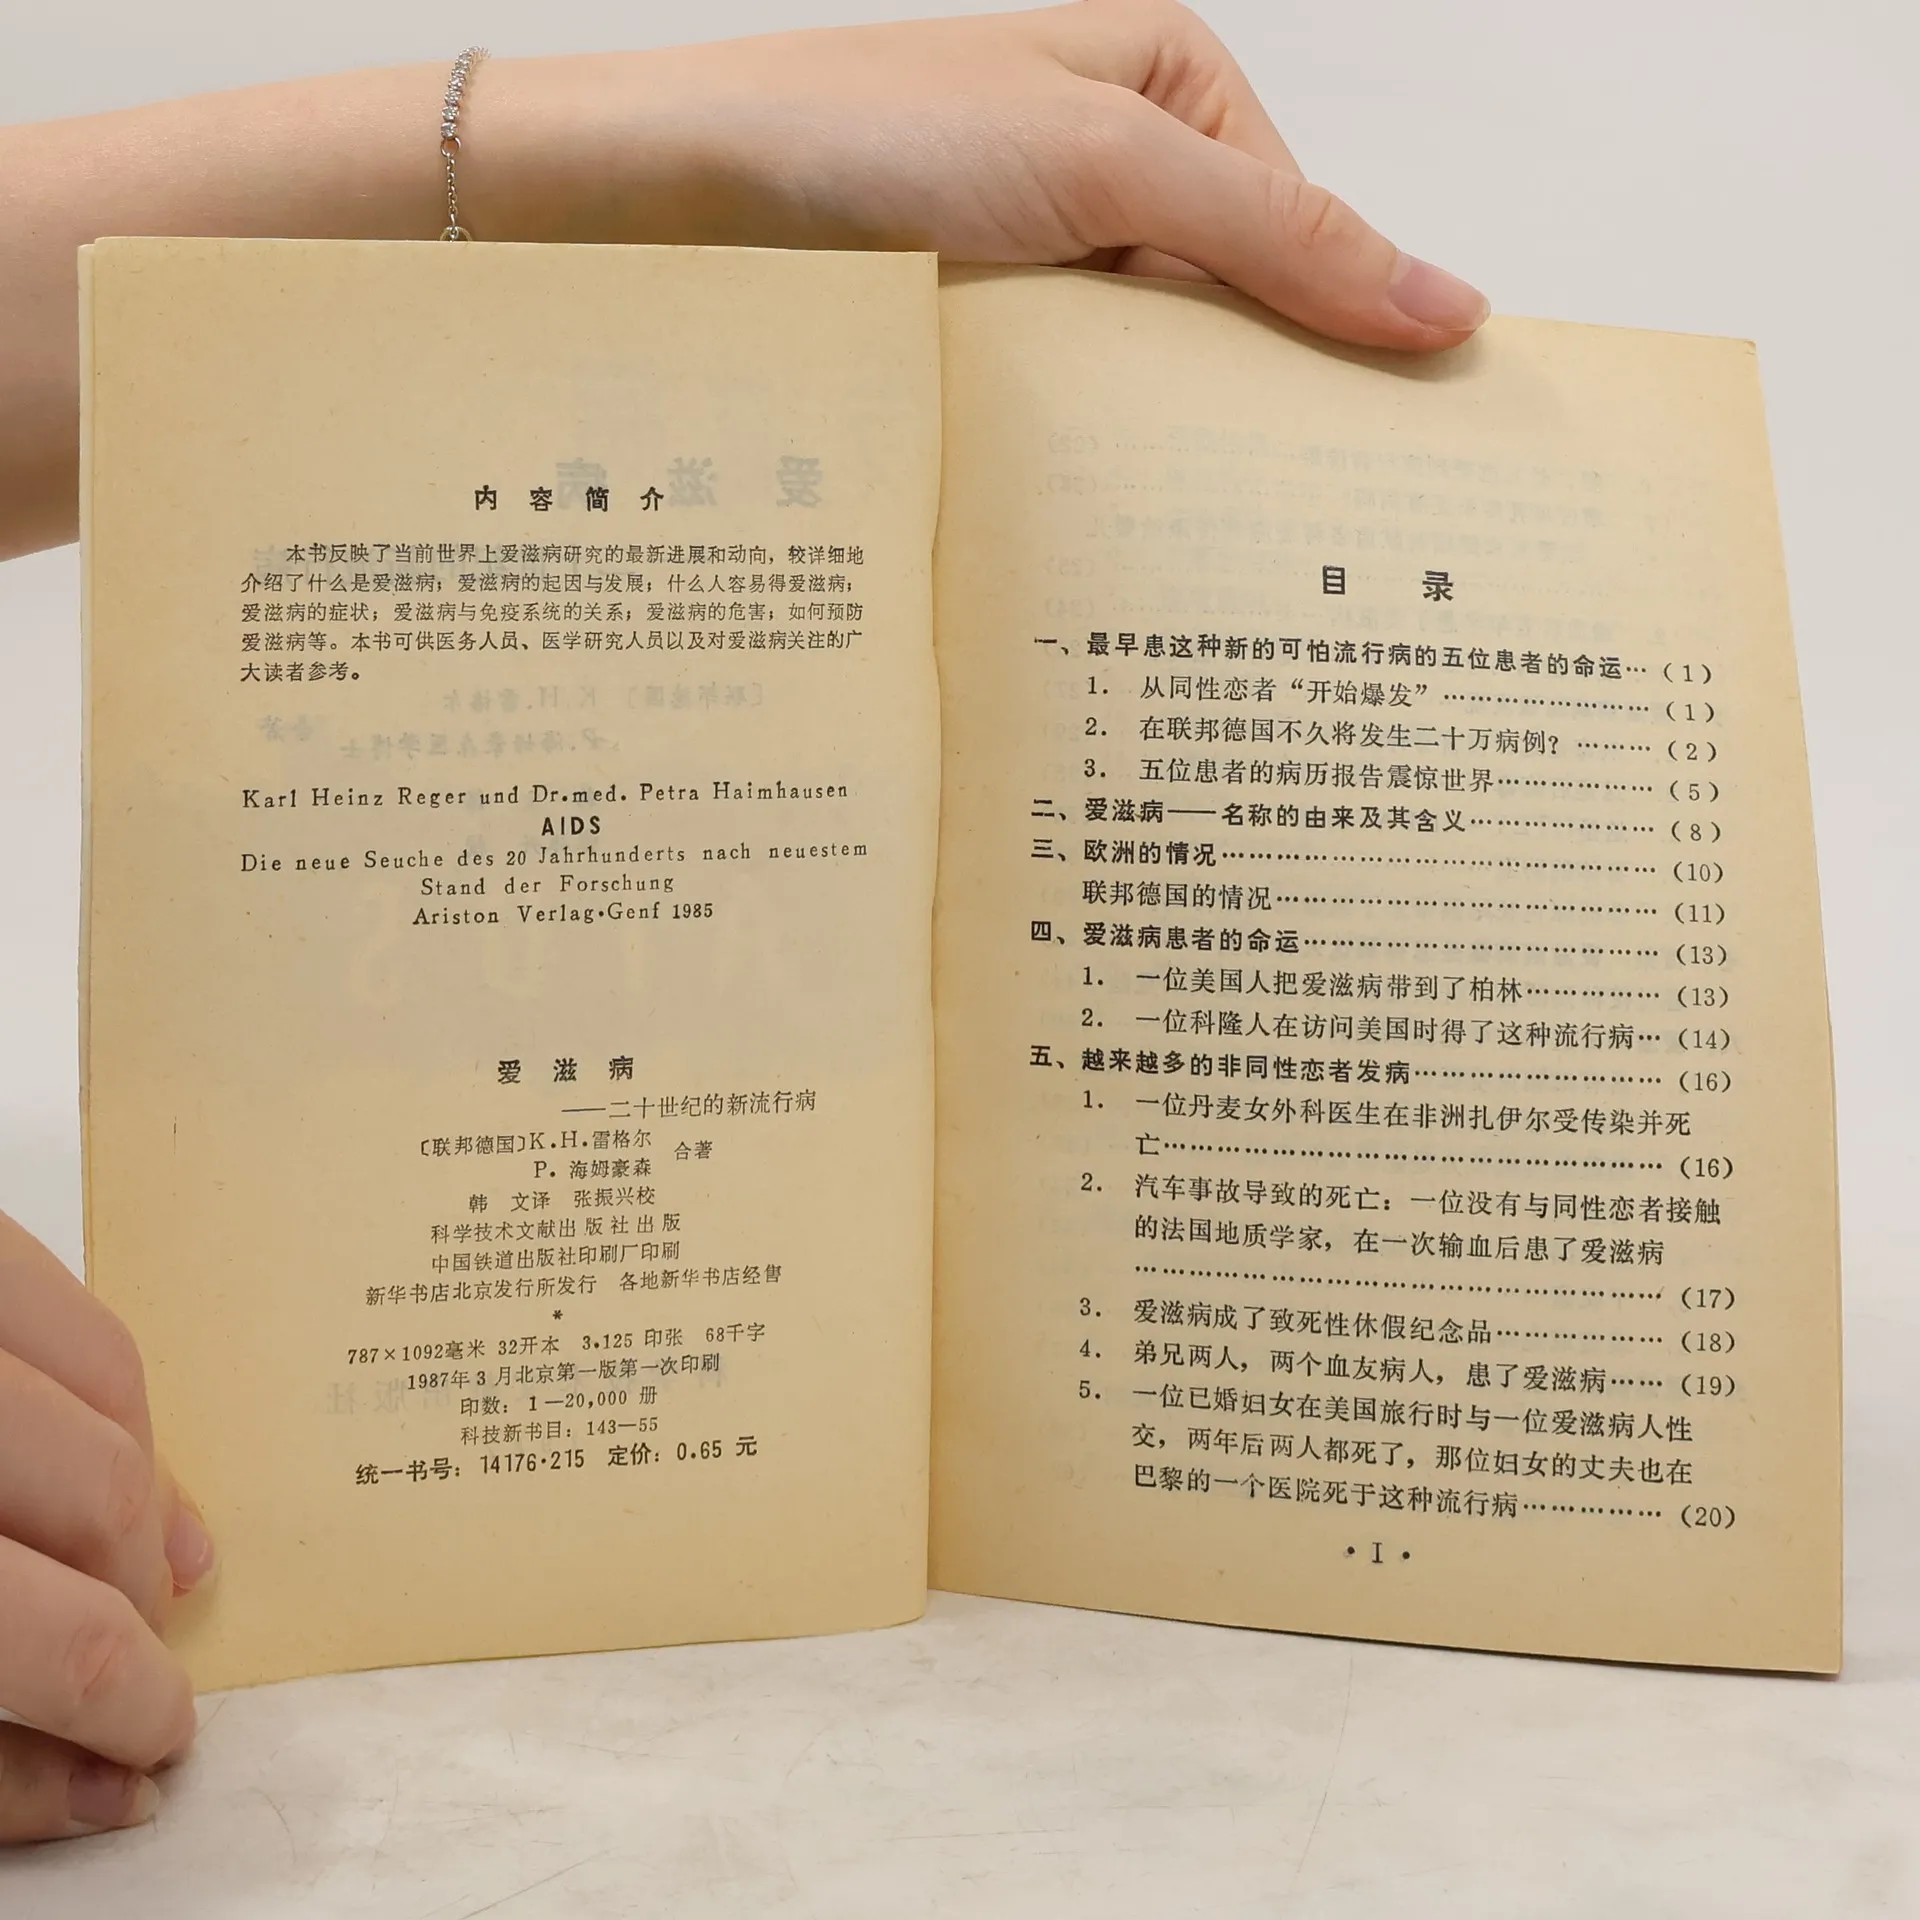 内容简介
本书反映了当前世界上爱滋病研究的最新进展和动向，较详细地
介绍了什么是爱滋病；爱滋病的起因与发展；什么人容易得爱滋病；
爱滋病的症状；爱滋病与免疫系统的关系；爱滋病的危害；如何预防
爱滋病等。本书可供医务人员、医学研究人员以及对爱滋病关注的广
大读者参考。
Karl Heinz Reger und Dr.med. Petra Haimhausen
AIDS
Die neue Seuche des 20 Jahrhunderts nach neuestem
Stand der Forschung
Ariston Verlag·Genf 1985
爱滋病
——二十世纪的新流行病
〔联邦德国〕K.H.雷格尔
P. 海姆豪森 合著
韩 文译 张振兴校
科学技术文献出版社出版
中国铁道出版社印刷厂印刷
新华书店北京发行所发行 各地新华书店经售
*
787×1092毫米 32开本 3.125 印张 68千字
1987年3月北京第一版第一次印刷
印数：1—20,000 册
科技新书目：143—55
统一书号：14176·215 定价：0.65 元
目录
一、最早患这种新的可怕流行病的五位患者的命运…（1）
1. 从同性恋者“开始爆发”…………………（1）
2. 在联邦德国不久将发生二十万病例？………（2）
3. 五位患者的病历报告震惊世界………………（5）
二、爱滋病——名称的由来及其含义…………………（8）
三、欧洲的情况…………………………………………（10）
联邦德国的情况……………………………………（11）
四、爱滋病患者的命运…………………………………（13）
1. 一位美国人把爱滋病带到了柏林……………（13）
2. 一位科隆人在访问美国时得了这种流行病…（14）
五、越来越多的非同性恋者发病………………………（16）
1. 一位丹麦女外科医生在非洲扎伊尔受传染并死
亡…………………………………………………（16）
2. 汽车事故导致的死亡：一位没有与同性恋者接触
的法国地质学家，在一次输血后患了爱滋病
……………………………………………………（17）
3. 爱滋病成了致死性休假纪念品………………（18）
4. 弟兄两人，两个血友病人，患了爱滋病……（19）
5. 一位已婚妇女在美国旅行时与一位爱滋病人性
交，两年后两人都死了，那位妇女的丈夫也在
巴黎的一个医院死于这种流行病……………（20）
· I ·